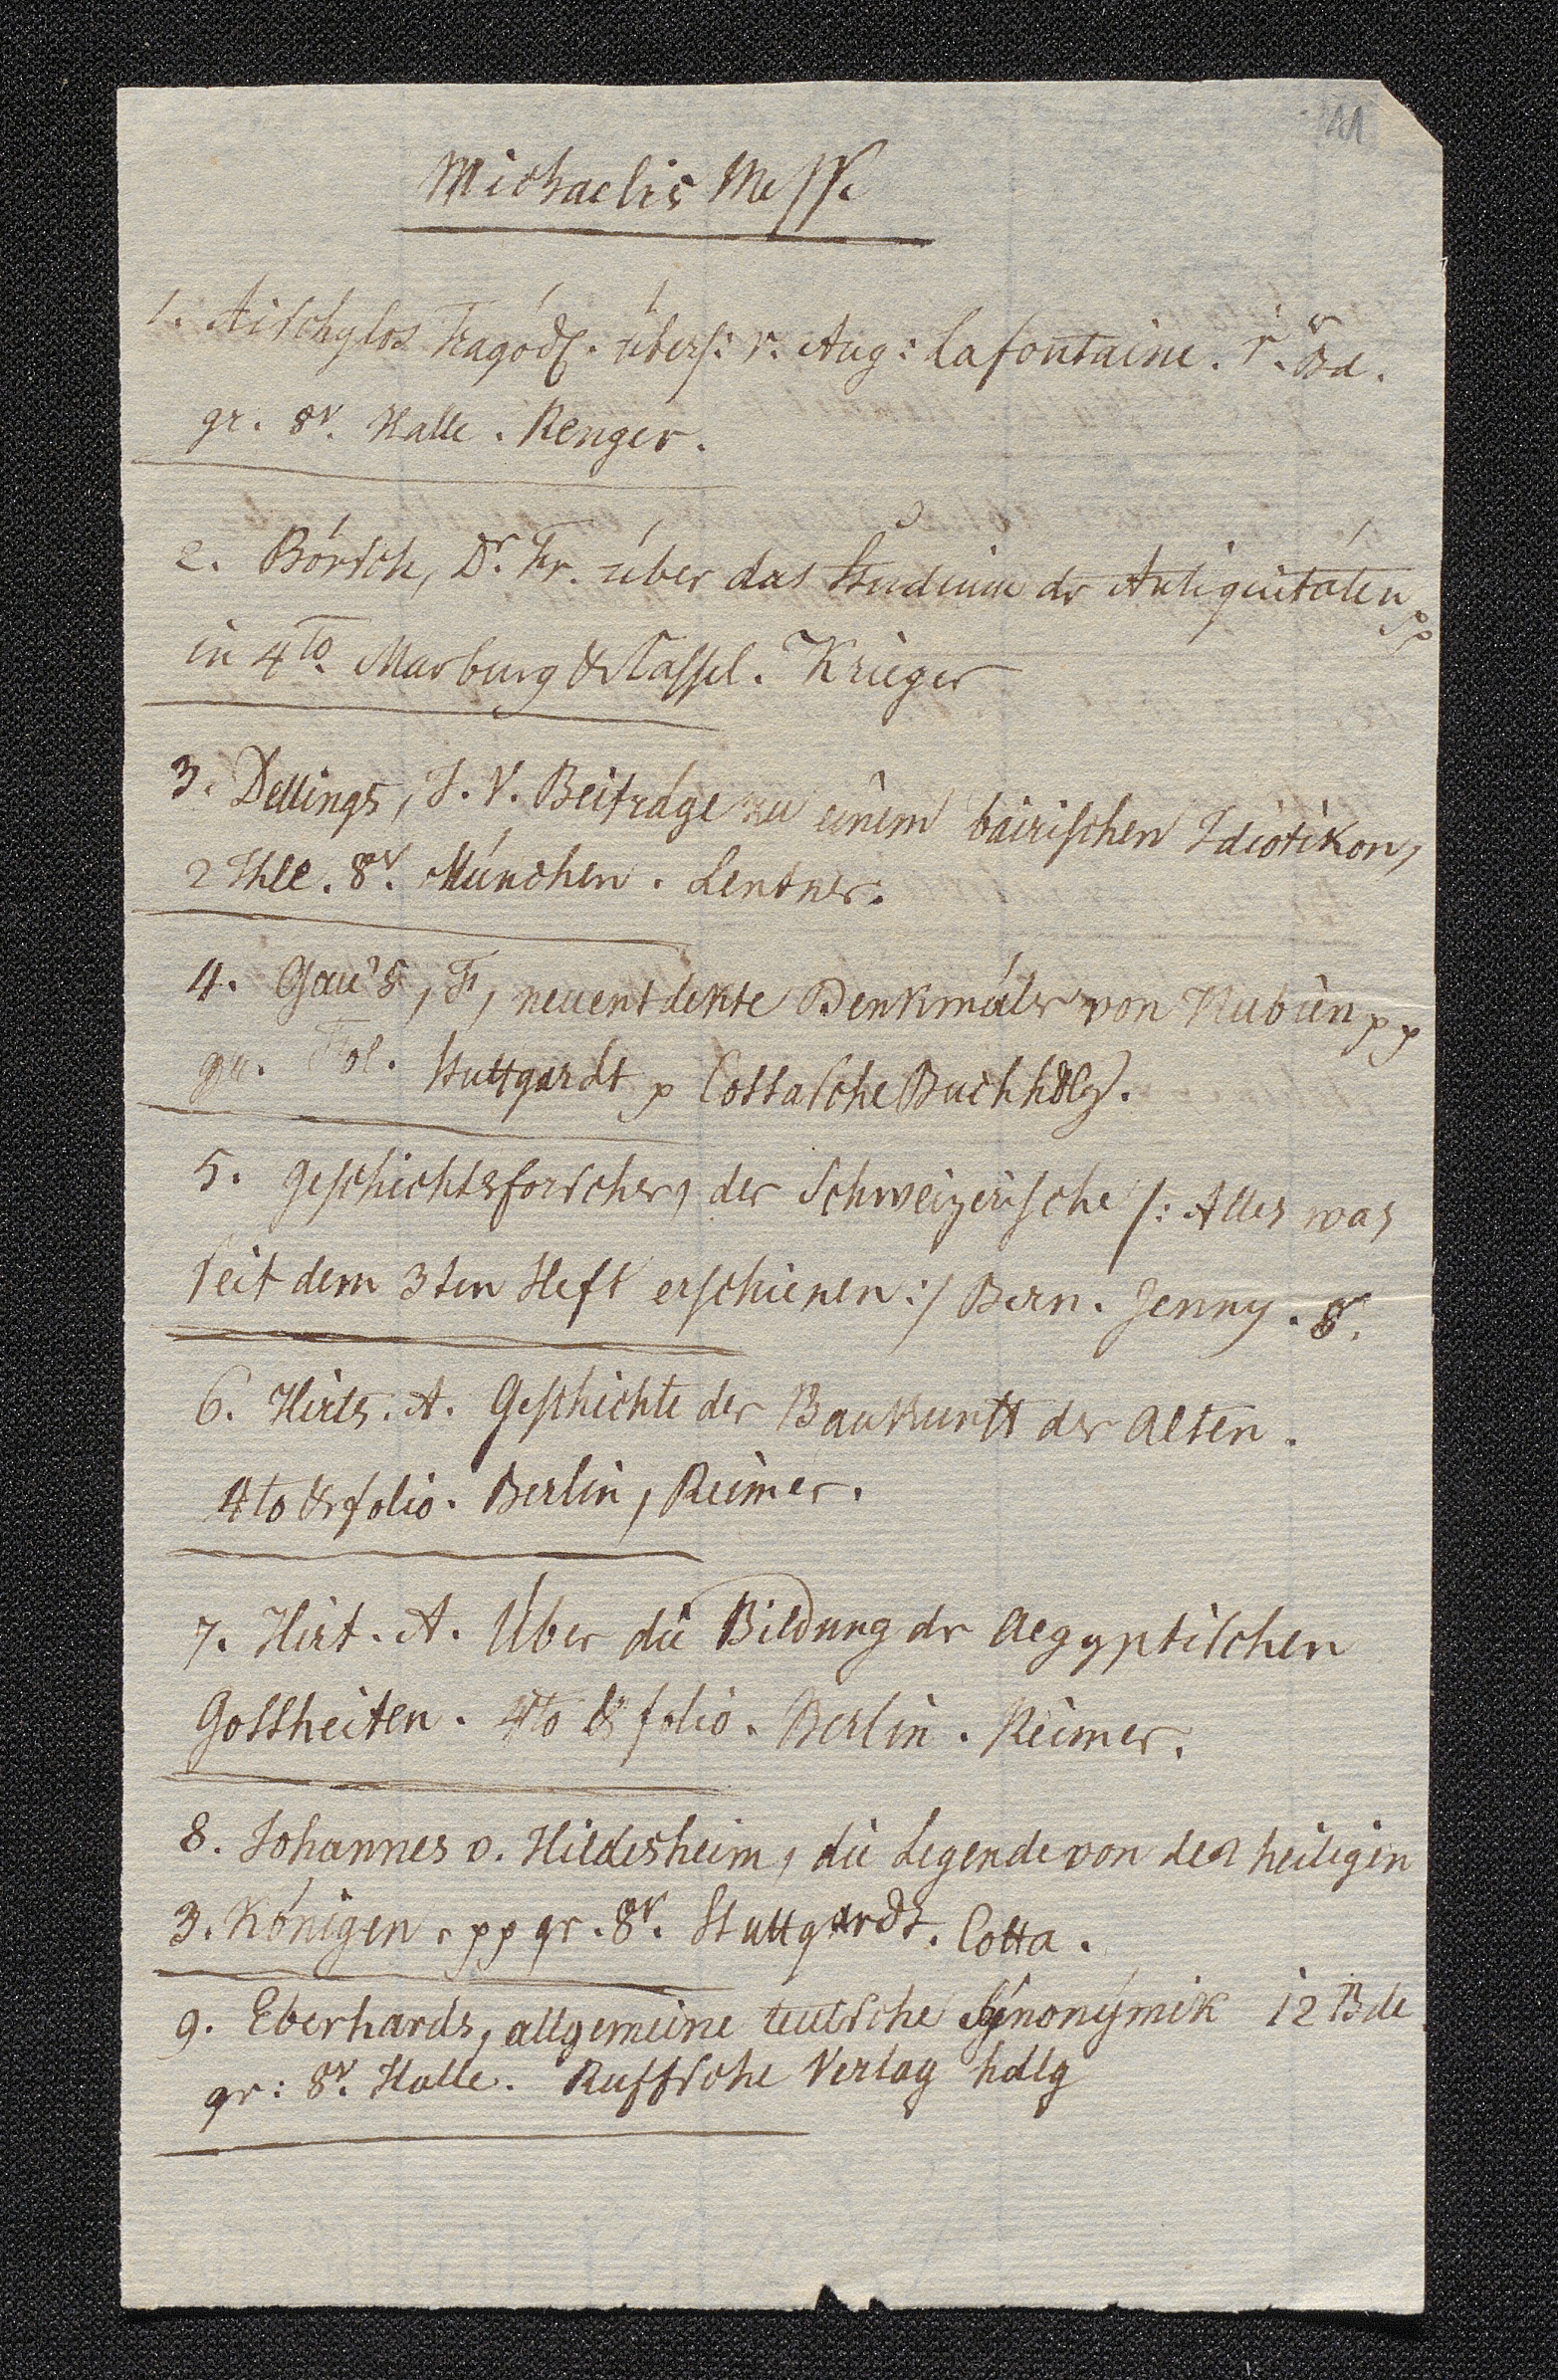 11
Michaelis Messe
1. Aischylos Tragöd. übers: v. Aug: Lafontaine. 1r. Bd.
gr. 8v. Halle. Renger.
2. Börsch, Dr. Fr. über das Studium dr Antiquitäten pp
in 4to. Marburg & Cassel. Krieger
3. Dellings, J. V. Beiträge zu einem bairischen Idiotikon,
2 Thle. 8v. München. Lentner.
4. Gau's, F, neuentdekte Denkmäler von Nubien pp
gr. Fol. Stuttgardt p Cottasche Buchhdlg.
5. Geschichtsforscher, der Schweizerische /: Alles was
seit dem 3ten Heft erschienen:/ Bern. Jenny. 8v.
6. Hirts. A. Geschichte der Baukunst der Alten.
4to & folio. Berlin, Reimer.
7. Hirt. A. Über die Bildung dr Aegyptischen
Gottheiten. 4to & folio. Berlin. Reimer.
8. Johannes v. Hildesheim, die Legende von den heiligen
3. Königen. pp gr. 8v. Stuttgardt. Cotta.
9. Eberhards, allgemeine teutsche Synonymik 12 Bde
gr: 8v. Halle. Ruffsche Verlag hdlg